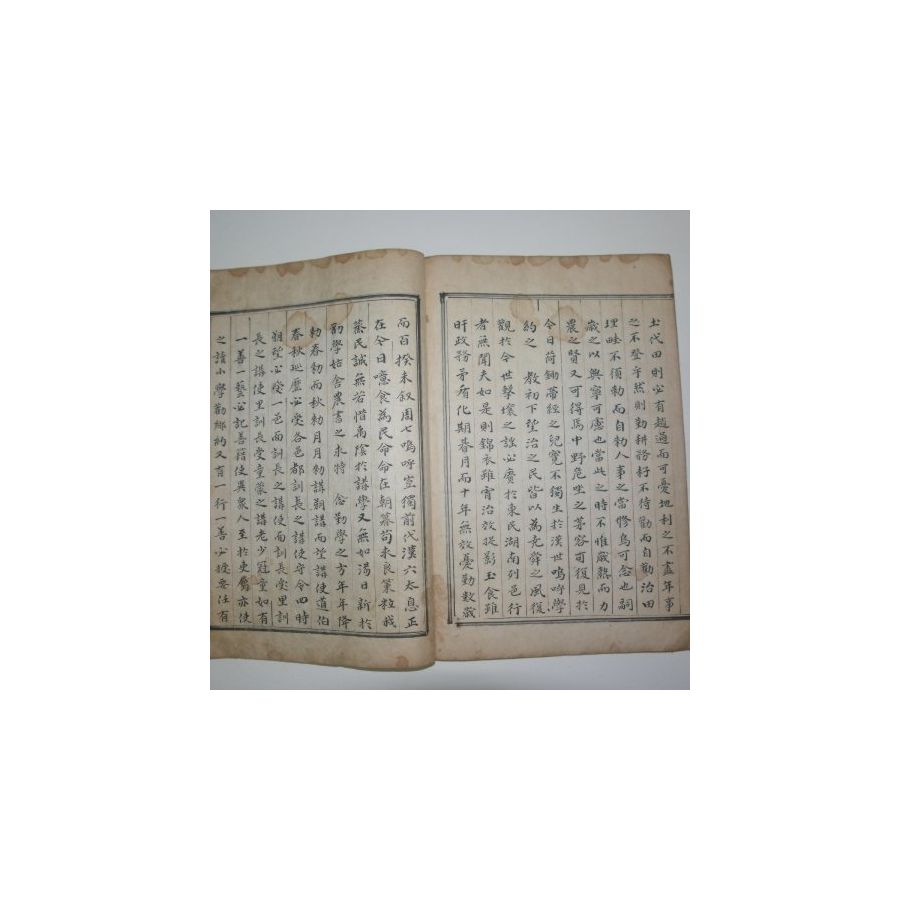 土代田則必有趙過而可憂地利之不盡年事
之不登乎然則勤耕務籽不待勸而自勸治田
理畦不須勅而自勅人事之當修烏可念也詞
歲之以興寧可慮也當此之時不惟歲熟而力
農之賢又可得焉中野危坐之茅容可復見於
今日荷鋤帶經之兒寬不獨生於漢世嗚呼學
約之 教初下望治之民皆以為堯舜之風復
觀於今世擊壤之謠必賡於東民湖南列邑行
者無聞夫如是則錦衣雖宵治效捉影玉食雖
旰政務矛盾化期暮月而十年無效憂勤數歲
而百揆未叙周七嗚呼豈獨前代漢六太息正
在今日噫食為民命命在朝暮苟未良策粒我
蒸民誠無若惜禹陰於講學又無如湯日新於
勸學姑舍農書之末特 念勤學之方年年降
勅春勅而秋勅月月勅講朔講而望講使道伯
春秋巡歷必受各邑都訓長之講使守令四時
朔望必受一邑面訓長之講使面訓長受里訓
長之講使里訓長受童蒙之講老少冠童如有
一善一藝必記善籍使異衆人至於吏屬亦使
之讀小學勸鄉約又有一行一善必授要任有